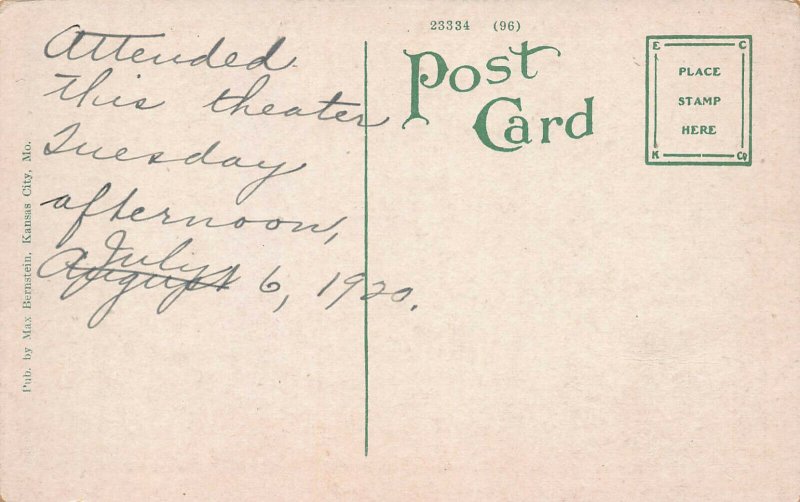 Attended
this theater
Tuesday
afternoon,
July
August 6, 1920.
23334 (96)
Post
Card
E C
PLACE
STAMP
HERE
K Co
Pub. by Max Bernstein, Kansas City, Mo.